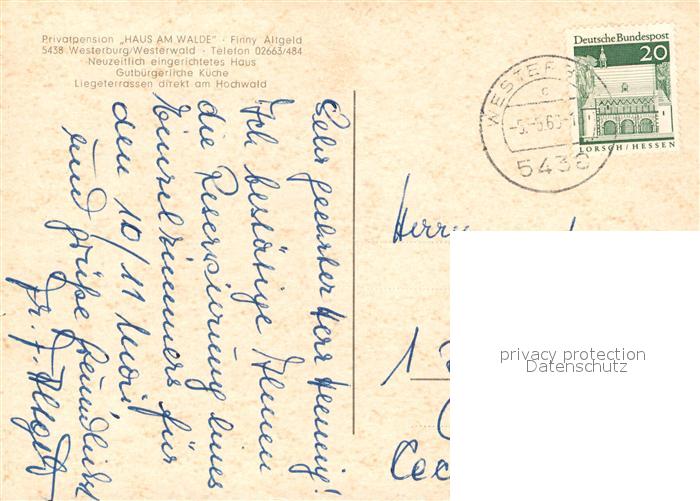 Privatpension „HAUS AM WALDE" · Finny Altgeld
5438 Westerburg/Westerwald · Telefon 02663/484
Neuzeitlich eingerichtetes Haus
Gutbürgerliche Küche
Liegeterrassen direkt am Hochwald
Deutsche Bundespost
20
LORSCH/HESSEN
WESTERB
c
5438
Sehr geehrter Herr Hennig!
Ich bestätige Ihnen
die Reservierung eines
Einzelzimmers für
den 10/11 Mai
und grüße freundlichst
Fr. F. Altgeld
Herrn
1
privacy protection
Datenschutz